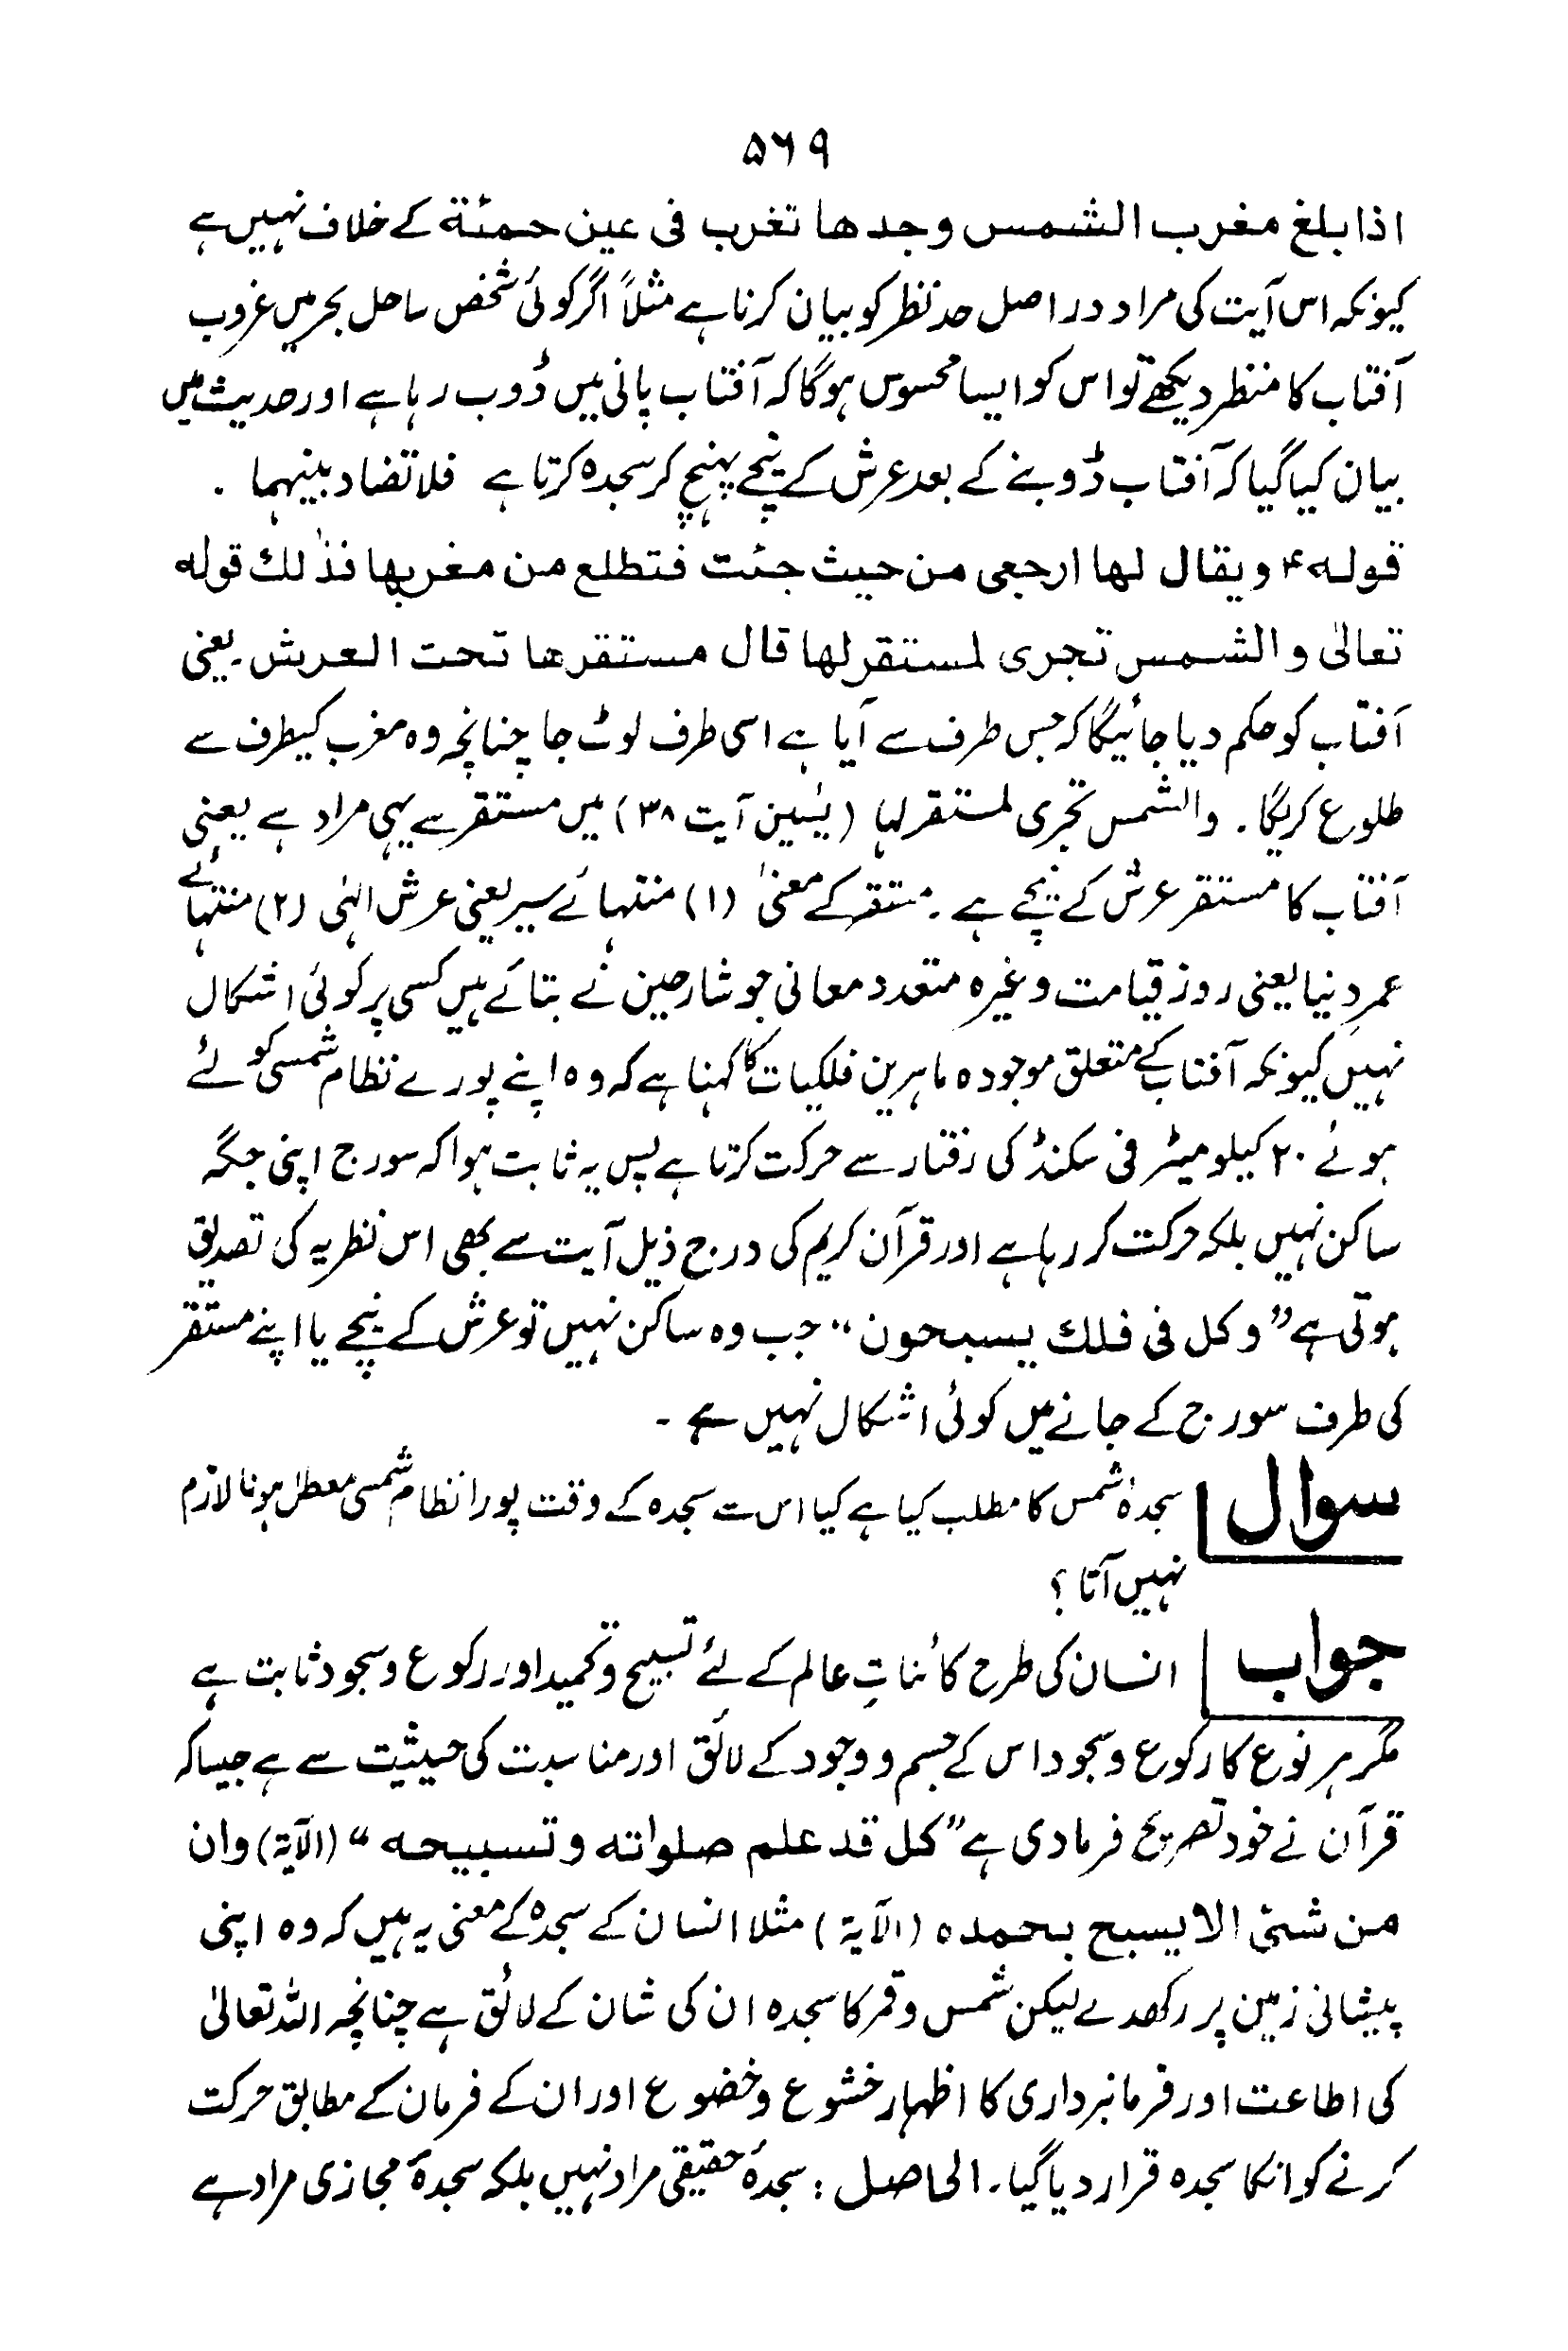 ۵۶۹
اذا بلغ مغرب الشمس وجدها تغرب فی عین حمئة کے خلاف نہیں ہے
کیونکہ اس آیت کی مراد دراصل حد نظر کو بیان کرنا ہے مثلاً اگر کوئی شخص ساحل بحر میں غروب
آفتاب کا منظر دیکھے تو اس کو ایسا محسوس ہوگا کہ آفتاب پانی میں ڈوب رہا ہے اور حدیث میں
بیان کیا گیا کہ آفتاب ڈوبنے کے بعد عرش کے نیچے پہنچ کر سجدہ کرتا ہے فلا تضاد بینہما ۔
قولہ ۴ ویقال لها ارجعی من حیث جئت فتطلع من مغربها فذٰلك قوله
تعالیٰ والشمس تجری لمستقر لها قال مستقرها تحت العرش ۔ یعنی
آفتاب کو حکم دیا جائیگا کہ جس طرف سے آیا ہے اسی طرف لوٹ جا چنانچہ وہ مغرب کیطرف سے
طلوع کریگا ۔ والشمس تجری لمستقر لہا (یٰسین آیت ۳۸) میں مستقر سے یہی مراد ہے یعنی
آفتاب کا مستقر عرش کے نیچے ہے ۔ مستقر کے معنیٰ (۱) منتہائے سیر یعنی عرش الہٰی (۲) منتہائے
عمرِ دنیا یعنی روز قیامت وغیرہ متعدد معانی جو شارحین نے بتائے ہیں کسی پر کوئی اشکال
نہیں کیونکہ آفتاب کے متعلق موجودہ ماہرین فلکیات کا کہنا ہے کہ وہ اپنے پورے نظام شمسی کو لئے
ہوئے ۲۰ کیلومیٹر فی سکنڈ کی رفتار سے حرکت کرتا ہے پس یہ ثابت ہوا کہ سورج اپنی جگہ
ساکن نہیں بلکہ حرکت کر رہا ہے اور قرآن کریم کی درج ذیل آیت سے بھی اس نظریہ کی تصدیق
ہوتی ہے ”وکل فی فلك یسبحون“ جب وہ ساکن نہیں تو عرش کے نیچے یا اپنے مستقر
کی طرف سورج کے جانے میں کوئی اشکال نہیں ہے ۔
سوال سجدۂ شمس کا مطلب کیا ہے کیا اس سے سجدہ کے وقت پورا نظام شمسی معطل ہونا لازم
نہیں آتا ؟
جواب انسان کی طرح کائناتِ عالم کے لئے تسبیح و تحمید اور رکوع و سجود ثابت ہے
مگر ہر نوع کا رکوع و سجود اس کے جسم و وجود کے لائق اور مناسبت کی حیثیت سے ہے جیسا کہ
قرآن نے خود تصریح فرما دی ہے ”کل قد علم صلواته وتسبیحه“ (الآیة) وان
من شیئ الا یسبح بحمده (الآیة) مثلا انسان کے سجدہ کے معنی یہ ہیں کہ وہ اپنی
پیشانی زمین پر رکھدے لیکن شمس و قمر کا سجدہ ان کی شان کے لائق ہے چنانچہ اللہ تعالیٰ
کی اطاعت اور فرمانبرداری کا اظہار خشوع و خضوع اور ان کے فرمان کے مطابق حرکت
کرنے کو انکا سجدہ قرار دیا گیا ۔ الحاصل : سجدۂ حقیقی مراد نہیں بلکہ سجدۂ مجازی مراد ہے